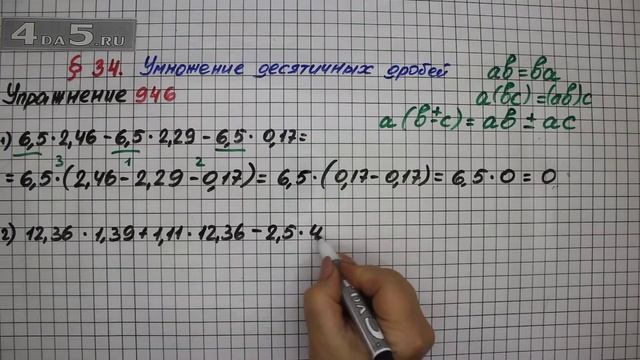 4DA5.RU
§ 34. Умножение десятичных дробей
Упражнение 946
ab=ba
a(bc)=(ab)c
a(b±c)=ab±ac
1) 6,5·2,46-6,5·2,29-6,5·0,17=
3 1 2
=6,5·(2,46-2,29-0,17)=6,5·(0,17-0,17)=6,5·0=0
2) 12,36·1,39+1,11·12,36-2,5·4